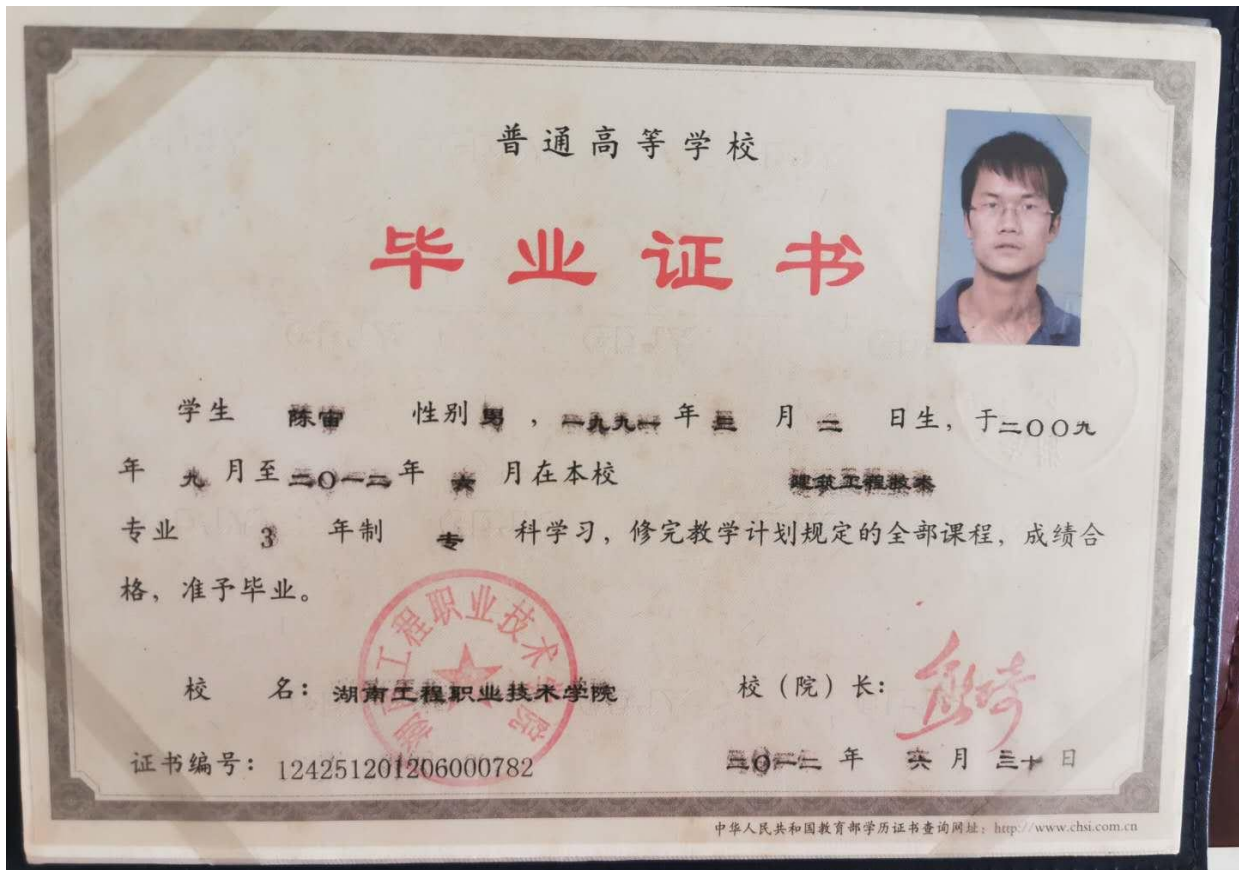 普通高等学校
毕业证书
学生 陈宙 性别 男 , 一九九一 年 三 月 二 日生, 于二〇〇九
年 九 月至 二〇一二 年 六 月在本校 建筑工程技术
专业 3 年制 专 科学习, 修完教学计划规定的全部课程, 成绩合
格, 准予毕业。
湖南工程职业技术学院
校 名: 湖南工程职业技术学院 校（院）长:
证书编号: 124251201206000782 二〇一二 年 六 月 三十 日
中华人民共和国教育部学历证书查询网址: http://www.chsi.com.cn